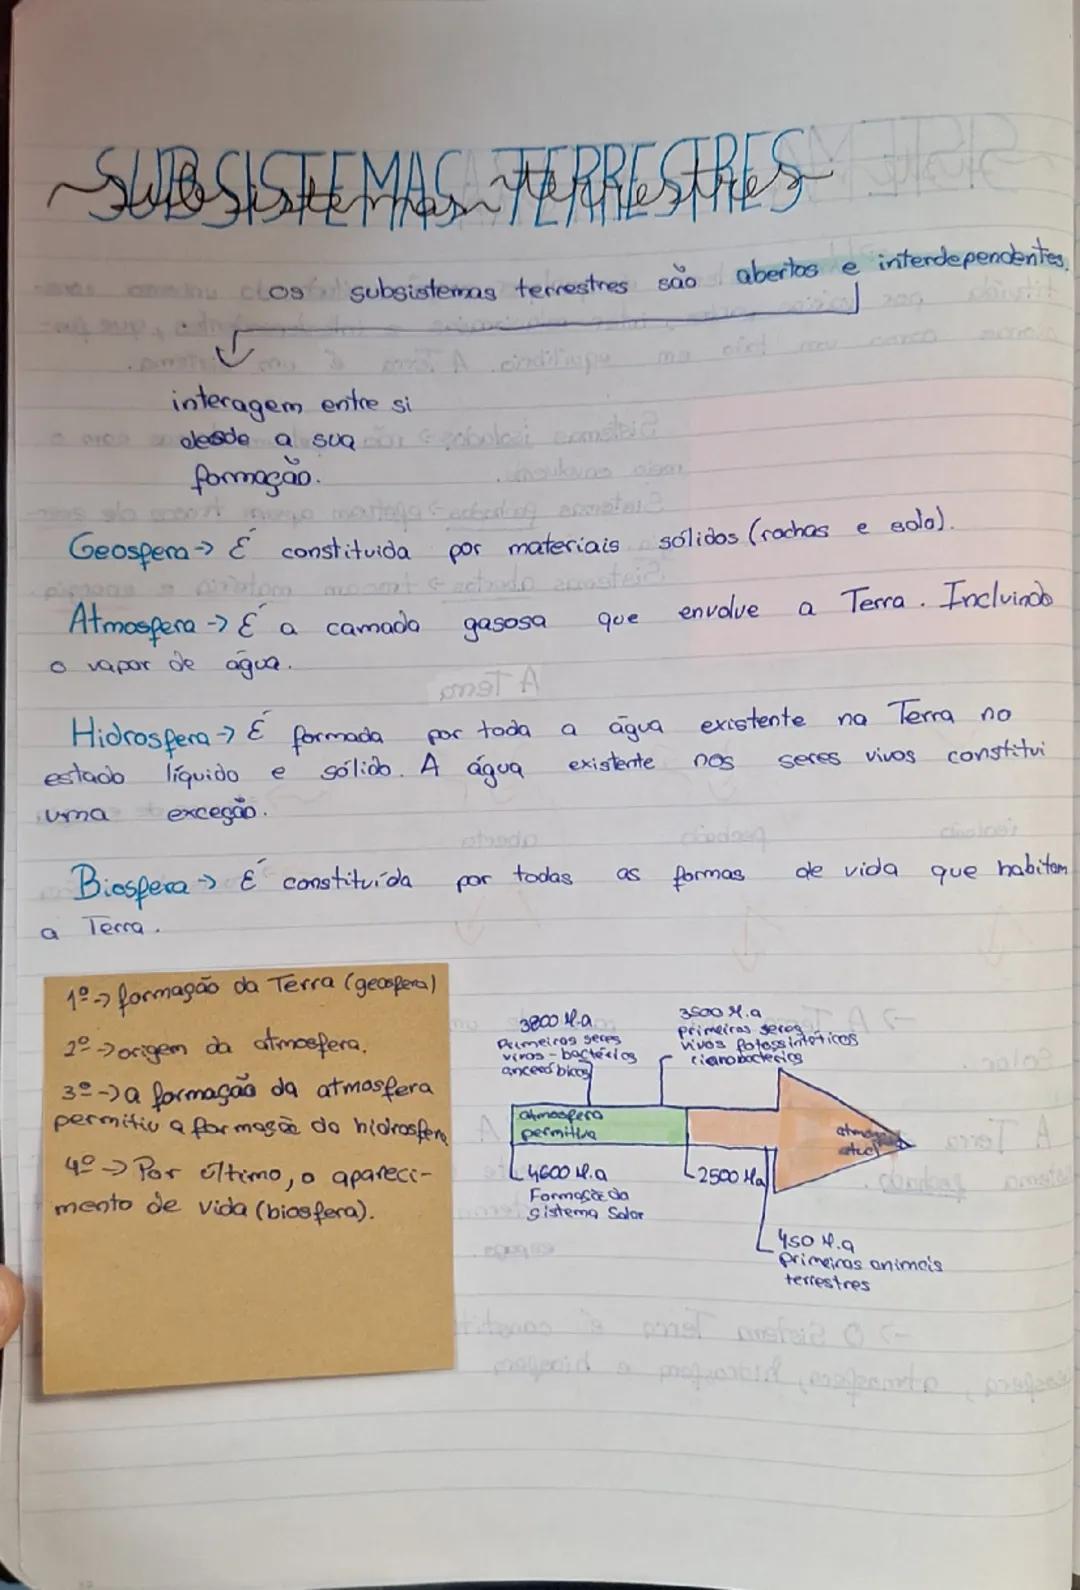 SUBSISTEMAS TERRESTRES
subsistemas terrestres
os subsistemas terrestres são abertos e interdependentes.
interagem entre si
desde a sua
formação.
Geosfera -> É constituida por materiais sólidos (rochas e solo).
Atmosfera -> É a camada gasosa que envolve a Terra. Incluindo
o vapor de água.
Hidrosfera -> É formada por toda a água existente na Terra no
estado líquido e sólido. A água existente nos seres vivos constitui
uma exceção.
Biosfera -> É constituída por todas as formas de vida que habitam
a Terra.
1º -> formação da Terra (geosfera)
2º -> origem da atmosfera.
3º -> a formação da atmosfera
permitiu a formação da hidrosfera
4º -> Por último, o apareci-
mento de vida (biosfera).
3800 M.a
Primeiros seres
vivos - bactérias
3500 M.a
primeiros seres
vivos fotossintéticos
cianobactérias
atmosfera
atmosfera
atual
4600 M.a
Formação do
Sistema Solar
2500 Ma
450 M.a
primeiros animais
terrestres